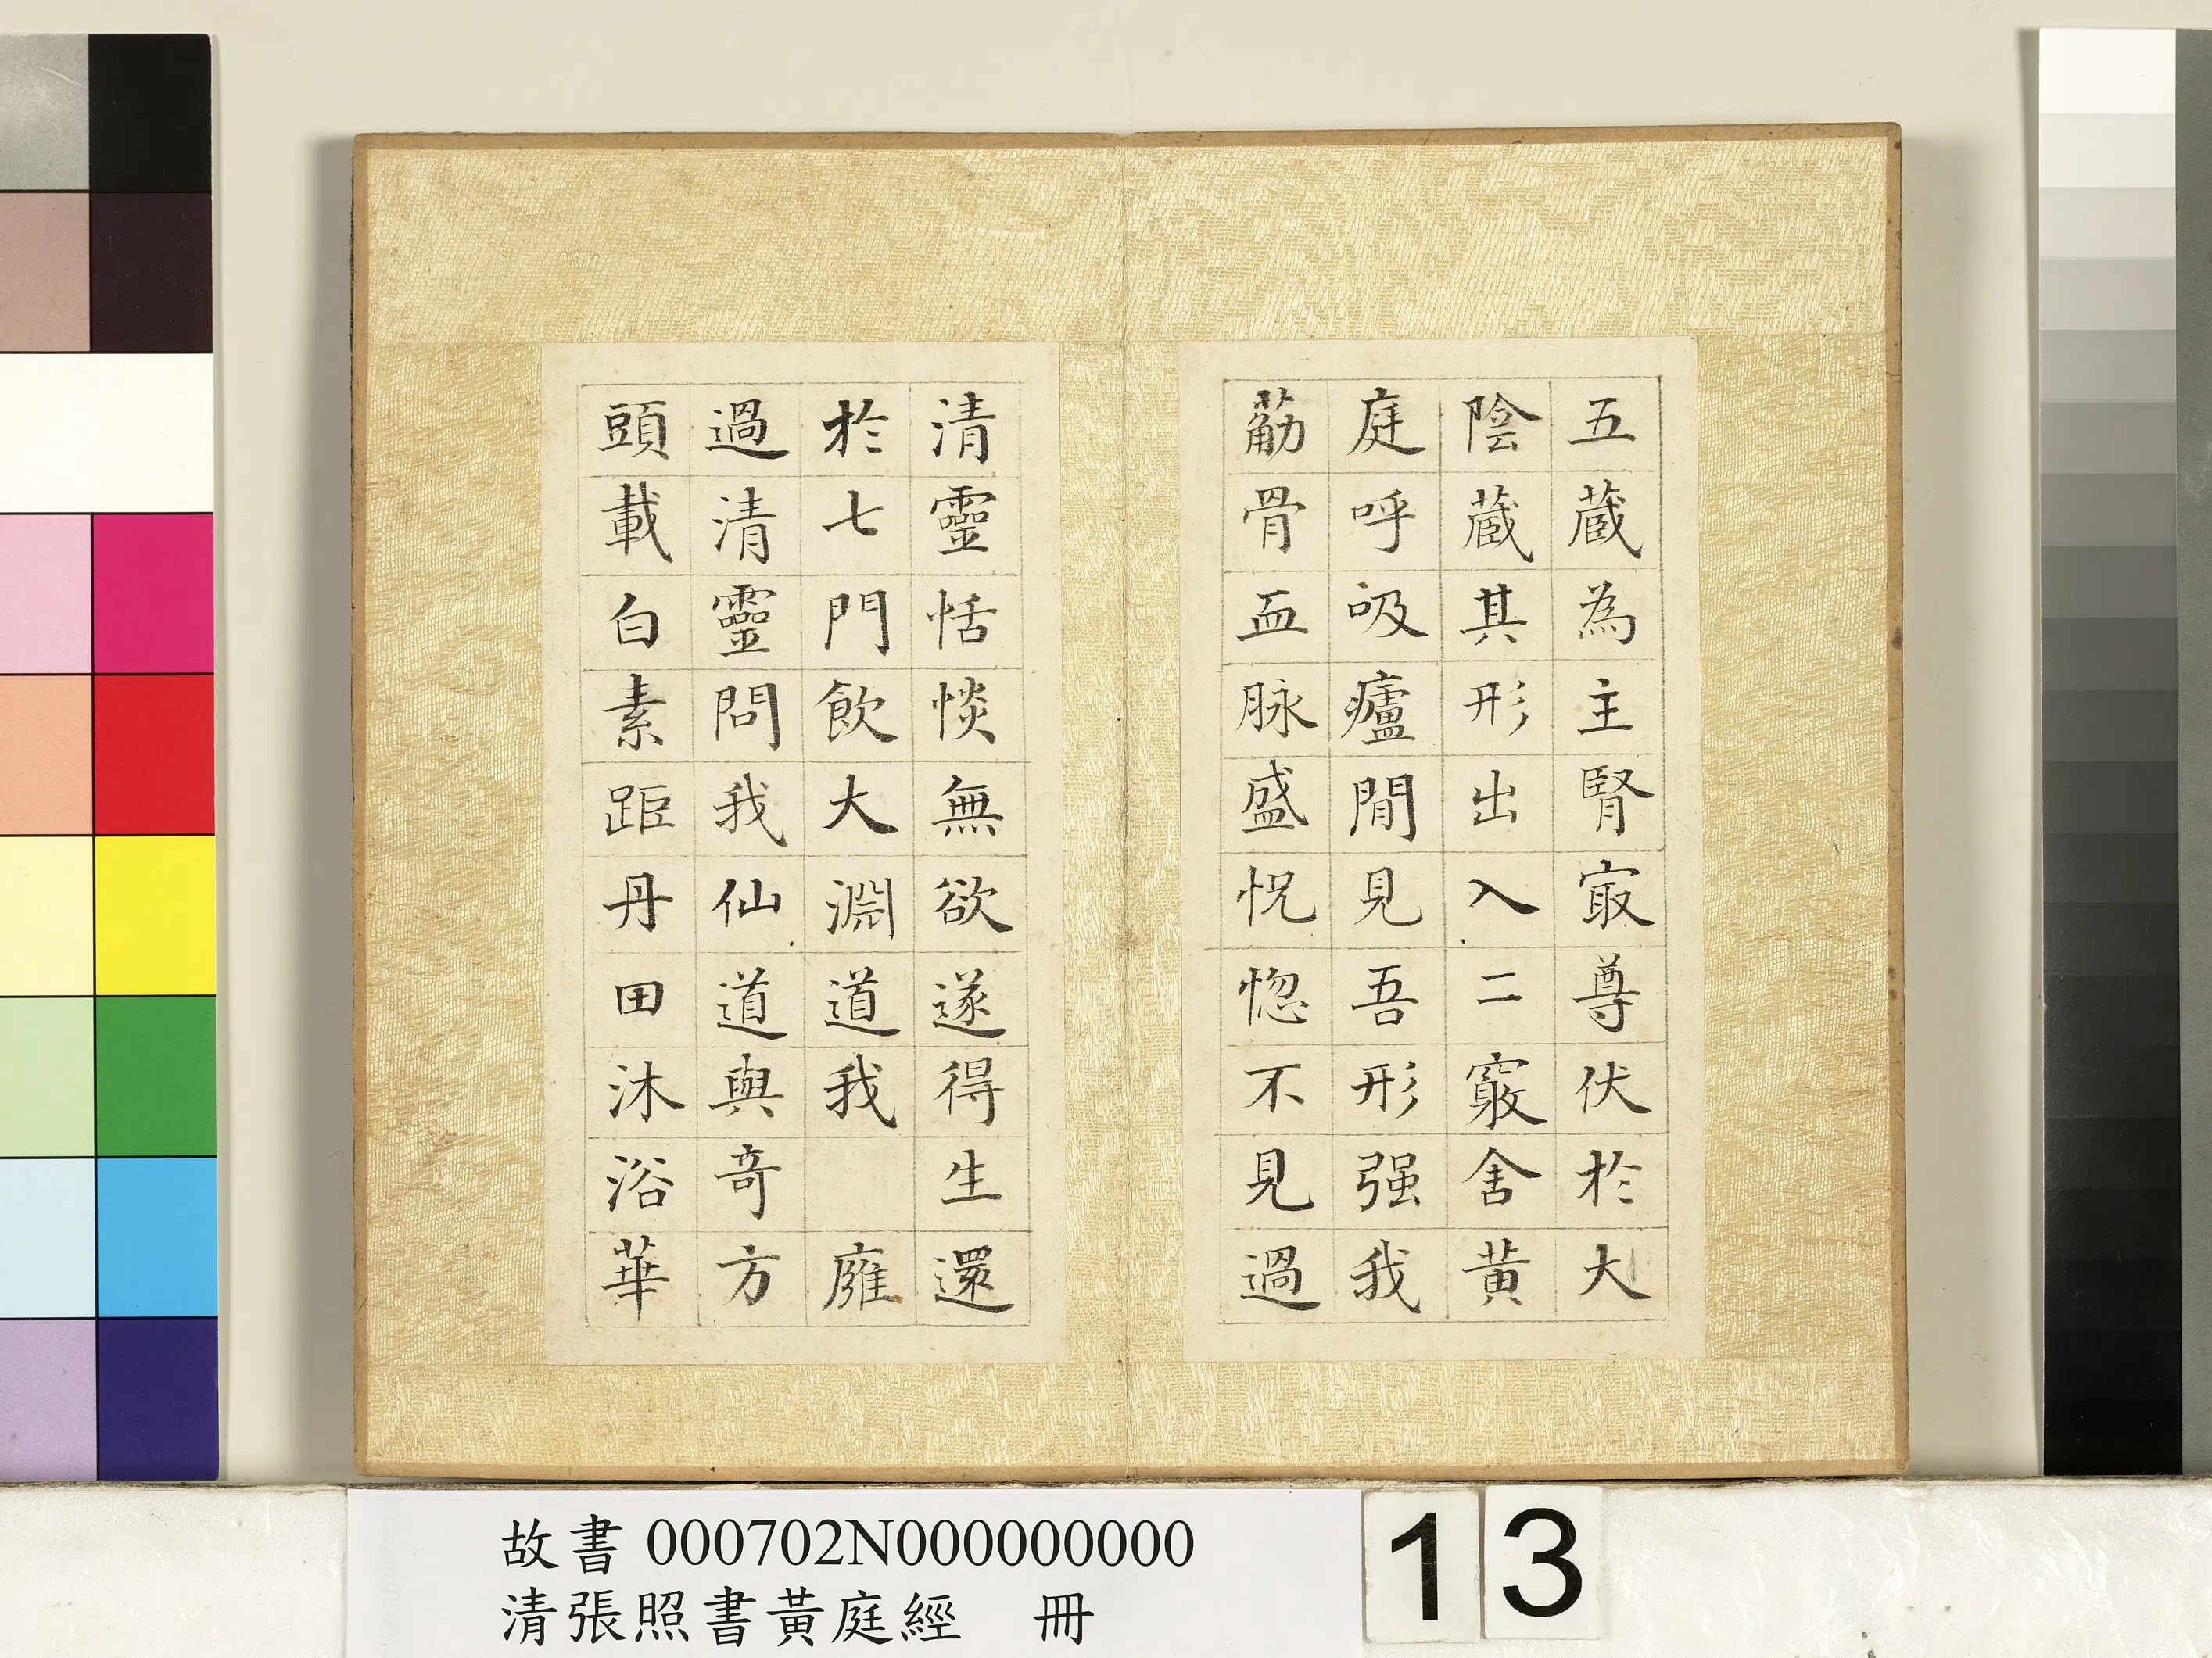 五蔵為主腎㝡尊伏於大
陰蔵其形出入二竅舍黃
庭呼吸癰間見吾形强我
觔骨血脉盛怳惚不見過
清靈恬惔無欲遂得生還
於七門飲大淵道我 廱
過清靈問我仙道與奇方
頭載白素距丹田沐浴華
故書 000702N000000000
清張照書黃庭經 冊
13